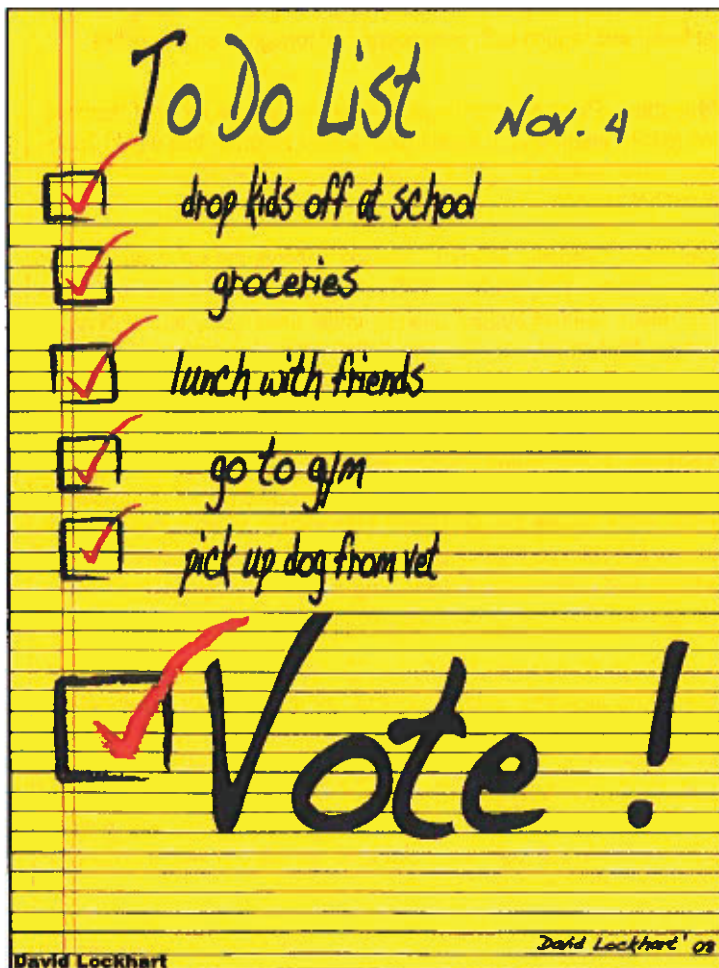 To Do List Nov. 4
drop kids off at school
groceries
lunch with friends
go to gym
pick up dog from vet
Vote !
David Lockhart '08
David Lockhart